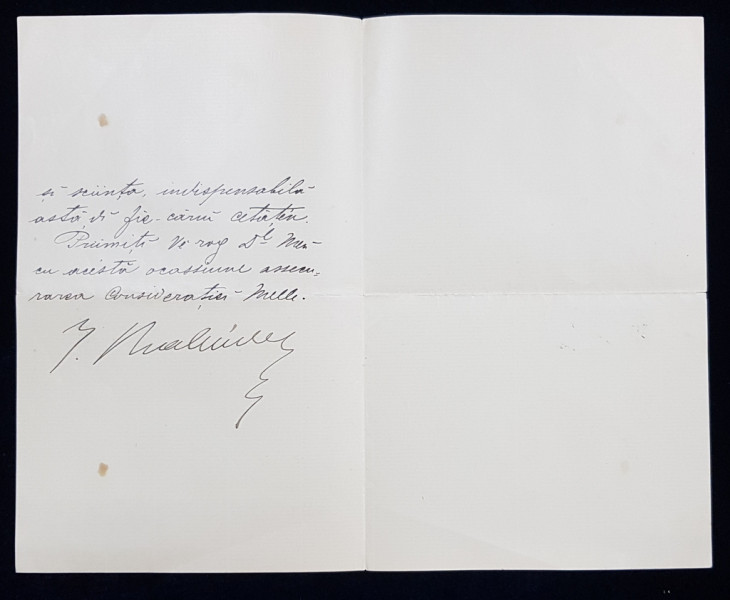 și sciința, indispensabilă
astă-di fie-cărui cetățén.
Primiți Ve rog
cu acéstă ocassiune assecu-
rarea Considerației Melle.